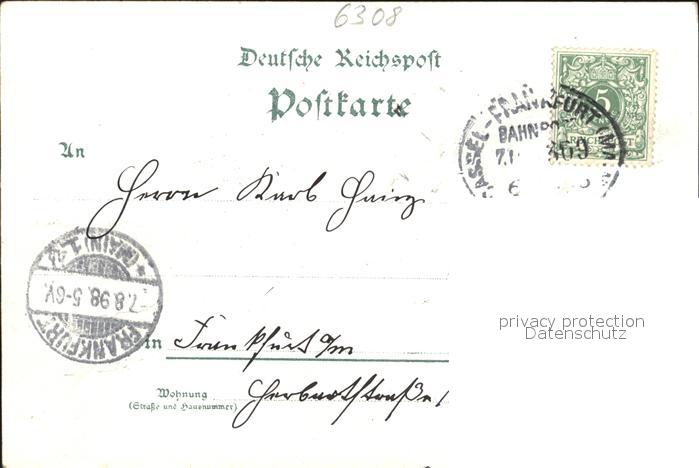 6308
Deutsche Reichspost
Postkarte
5
CASSEL-FRANKFURT (MAIN)
BAHNPOST
An
Herrn Karl Hainz
FRANKFURT (MAIN) 1
7.8.98. 5-6V.
in Frankfurt a/m
Wohnung
(Straße und Hausnummer)
Herbartstraße
privacy protection
Datenschutz